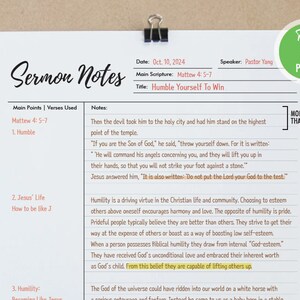 Sermon Notes
Date: Oct, 10, 2024
Speaker: Pastor Yang
Main Scripture: Mattew 4: 5-7
Title: Humble Yourself To Win
Main Points | Verses Used
Notes:
Mattew 4: 5-7
1. Humble
Then the devil took him to the holy city and had him stand on the highest
point of the temple.
"If you are the Son of God," he said, "throw yourself down. For it is written:
" He will command his angels concerning you, and they will lift you up in
their hands, so that you will not strike your foot against a stone.'"
Jesus answered him, "It is also written: 'Do not put the Lord your God to the test.'"
2. Jesus' Life
How to be like J
Humility is a driving virtue in the Christian life and community. Choosing to esteem
others above oneself encourages harmony and love. The opposite of humility is pride.
Prideful people typically believe they are better than others. They strive to get their
way at the expense of others or boast as a way of boosting low self-esteem.
When a person possesses Biblical humility they draw from internal "God-esteem."
They have received God's unconditional love and embraced their inherent worth
as God's child. From this belief they are capable of lifting others up.
3. Humility:
The God of the universe could have ridden into our world on a white horse with